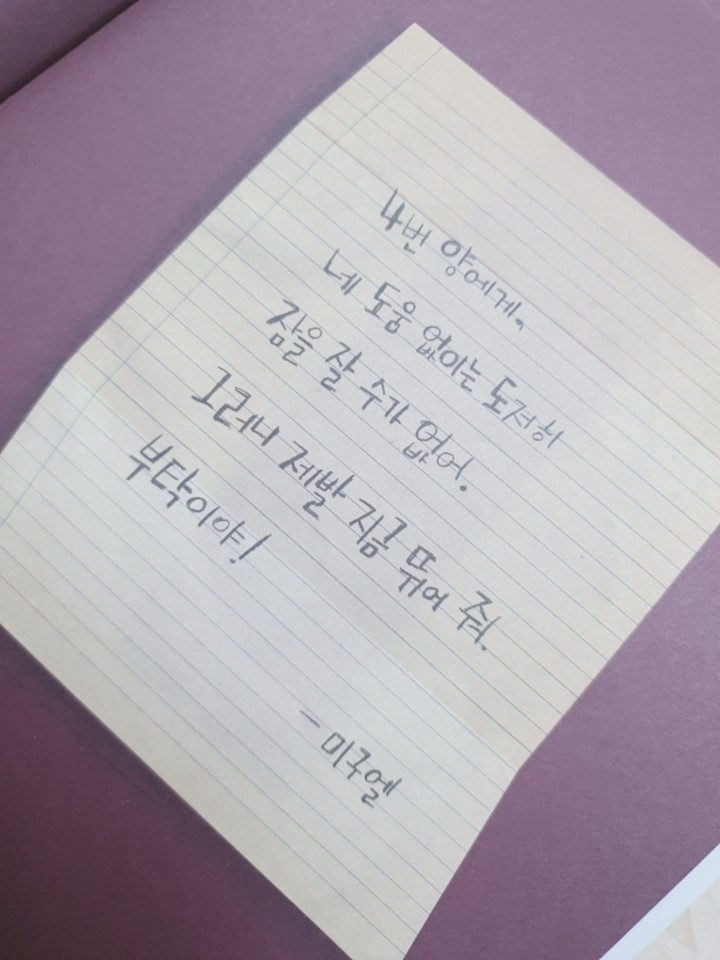 4번 양에게,
네 도움 없이는 도저히
잠을 잘 수가 없어.
그러니 제발 지금 뛰어 줘.
부탁이야!
- 미구엘